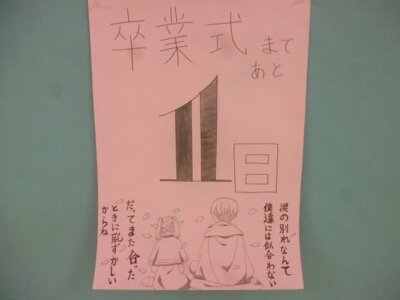 卒業式まで
あと
1日
涙の別れなんて
僕達には似合わない
だってまた会った
ときに恥ずかしい
からね